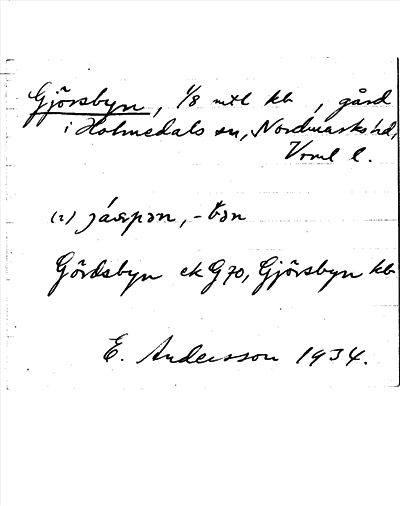 Gjörsbyn, 1/8 mtl kb, gård
i Holmedals sn, Nordmarks hd,
Vrml l.
(2)
Gördsbyn ek G70, Gjörsbyn kb
E. Andersson 1934.